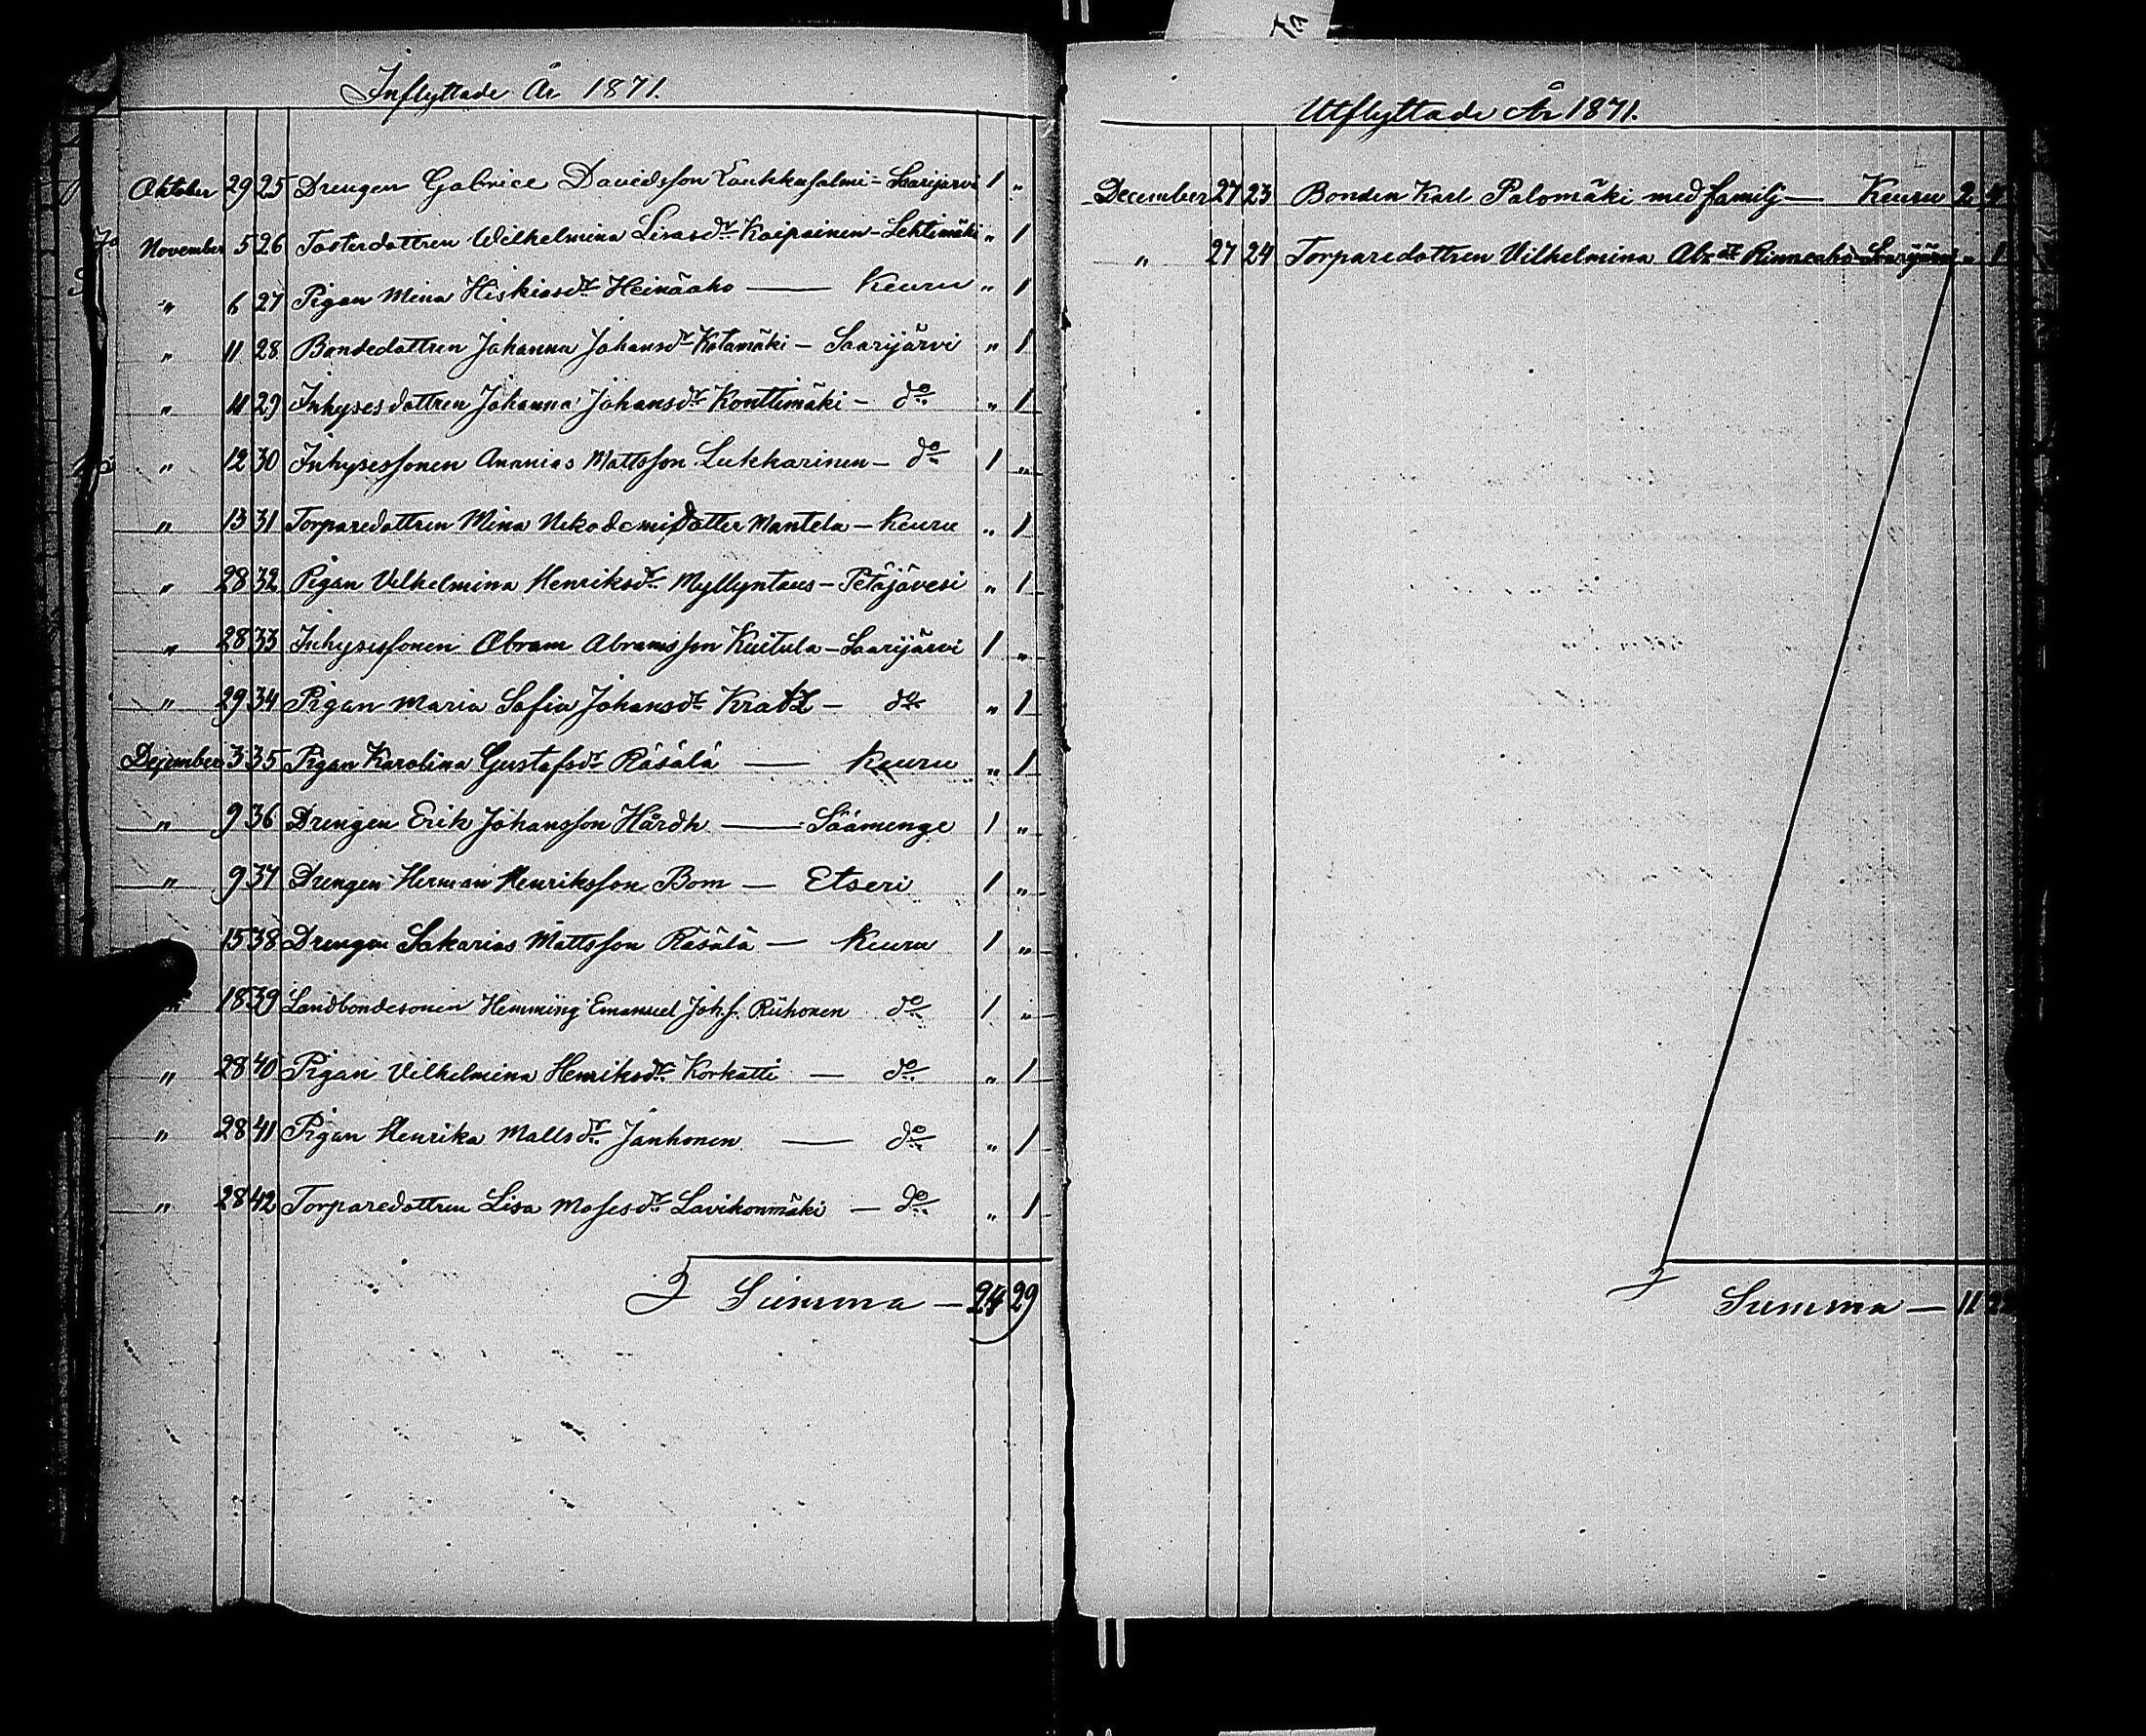 Inflyttade År 1871.
Oktober 29 25 Drengen Gabriel Davidsson Laukkasalmi - Saarijärvi 1 "
November 5 26 Fosterdottren Wilhelmina Lisasdr Kaipainen - Lehtimäki " 1
" 6 27 Pigan Mina Hiskiasdr Heinäaho — Keuru " 1
" 11 28 Bondedottren Johanna Johansdr Katamäki - Saarijärvi " 1
" 11 29 Inhysesdottren Johanna Johansdr Konttimäki - do " 1
" 12 30 Inhysessonen Ananias Mattsson Lukkarinen - do 1 "
" 13 31 Torparedottren Mina Nikodemidotter Mantela - Keuru " 1
" 28 32 Pigan Vilhelmina Henriksdr Myllyntaus - Petäjävesi " 1
" 28 33 Inhysessonen Abram Abramsson Kuitula - Saarijärvi 1 "
" 29 34 Pigan Maria Sofia Johansdr Kratz - do " 1
December 3 35 Pigan Karolina Gustafsdr Räsälä — Keuru " 1
" 9 36 Drengen Erik Johansson Hårdh — Säämenge 1 "
" 9 37 Drengen Herman Henriksson Bom — Etseri 1 "
15 38 Drengen Sakarias Mattsson Räsälä — Keuru 1 "
" 18 39 Landbondesonen Hemming Emanuel Joh.s. Riihonen do 1 "
" 28 40 Pigan Vilhelmina Henriksdr Korkatti — do " 1
" 28 41 Pigan Henrika Mattsdr Janhonen — do " 1
" 28 42 Torparedottren Lisa Mosesdr Lavikonmäki — do " 1
Summa — 24 29
Utflyttade År 1871.
December 27 23 Bonden Karl Palomäki med familj — Keuru 2 4
" 27 24 Torparedottren Vilhelmina Abr.dr Rinneaho - Saarijärvi " 1
Summa — 11